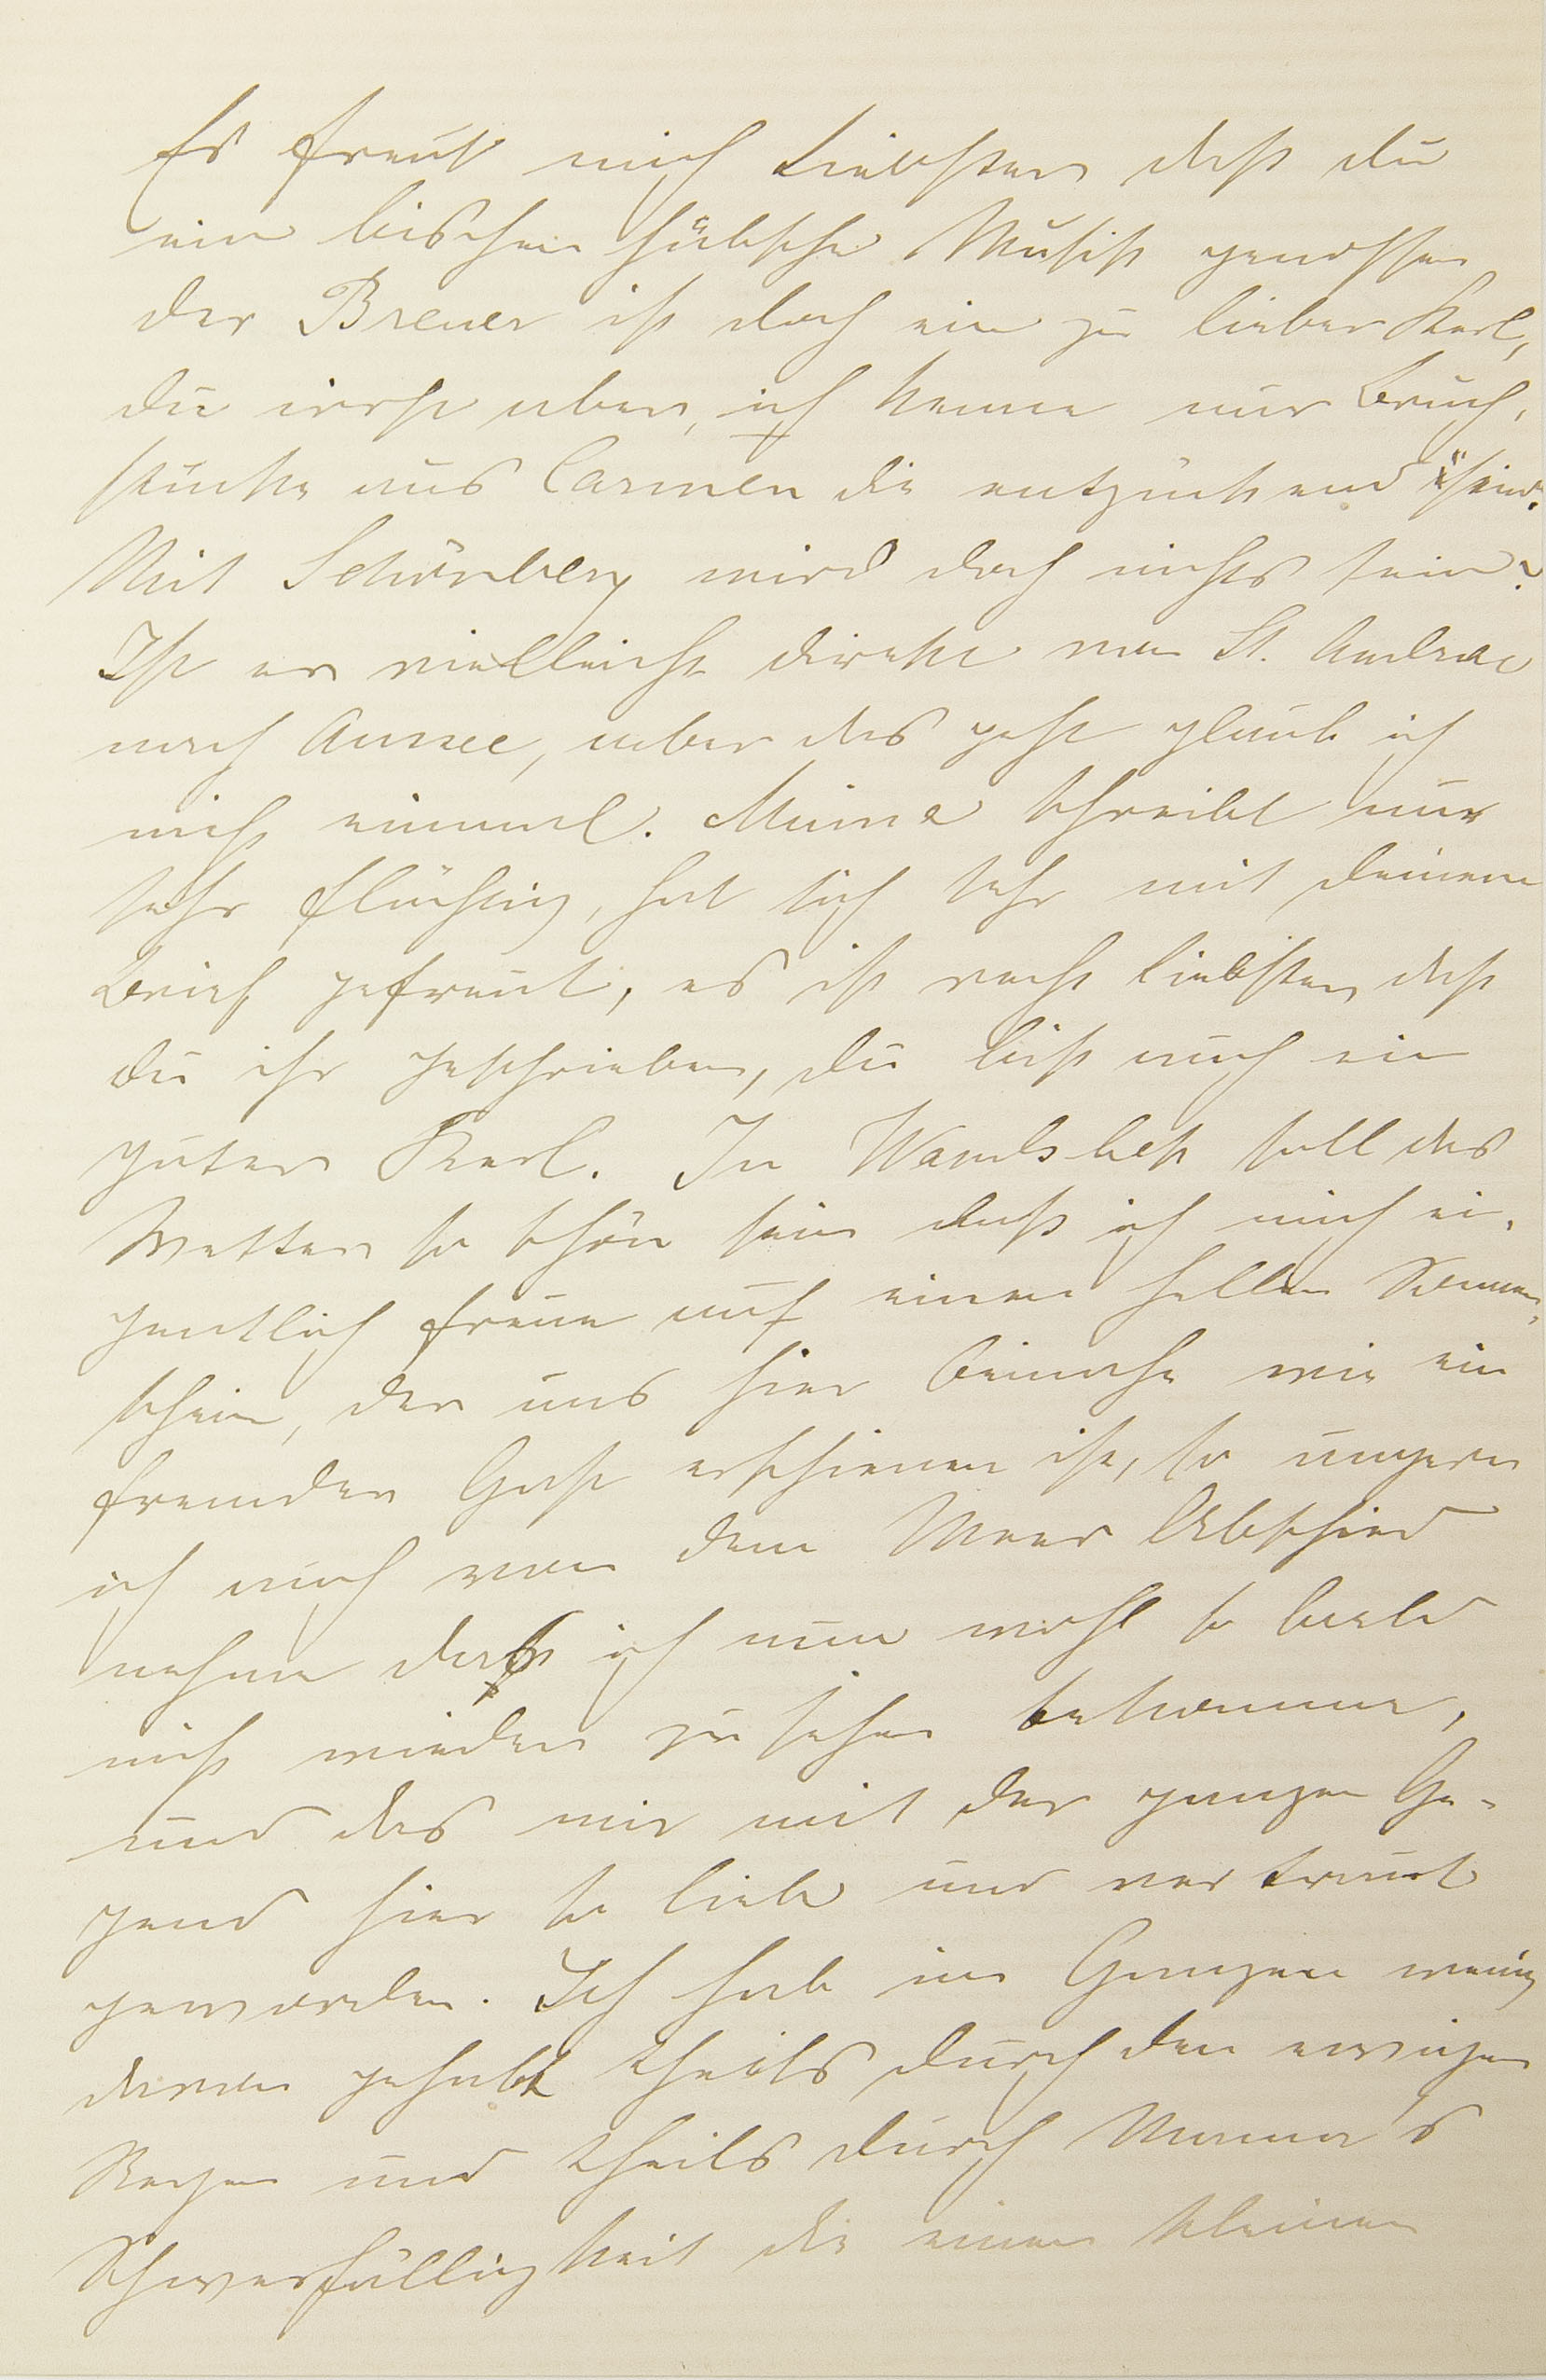 Es freut mich Liebster daß du
ein bischen hübsche Musik genossen
der Breuer ist doch ein zu lieber Kerl,
du irrst aber, ich kenne nur Bruch-
stücke aus Carmen die entzückend sind.
Mit Schönberg wird doch nichts sein?
Ist er vielleicht direkte von St. Andrae
nach Aussee, aber das geht glaub ich
nicht einmal. Minna schreibt nur
sehr flüchtig, hat sich sehr mit deinem
Brief gefreut, es ist recht Liebster daß
du ihr geschrieben, du bist auch ein
guter Kerl. In Wandsbek soll das
Wetter so schön sein daß ich mich ei-
gentlich freue auf einen hellen Sonnen-
schein, der uns hier beinahe wie ein
fremder Gast erschienen ist, so ungern
ich auch von dem Meer Abschied
nehme daß ich nun wohl so bald
nicht wieder zu sehen bekomme,
und das mir mit der ganzen Ge-
gend hier so lieb und vertraut
geworden. Ich hab im Ganzen wenig
davon gehabt theils durch den ewigen
Regen und theils durch Mama's
Schwerfälligkeit die einen kleinen